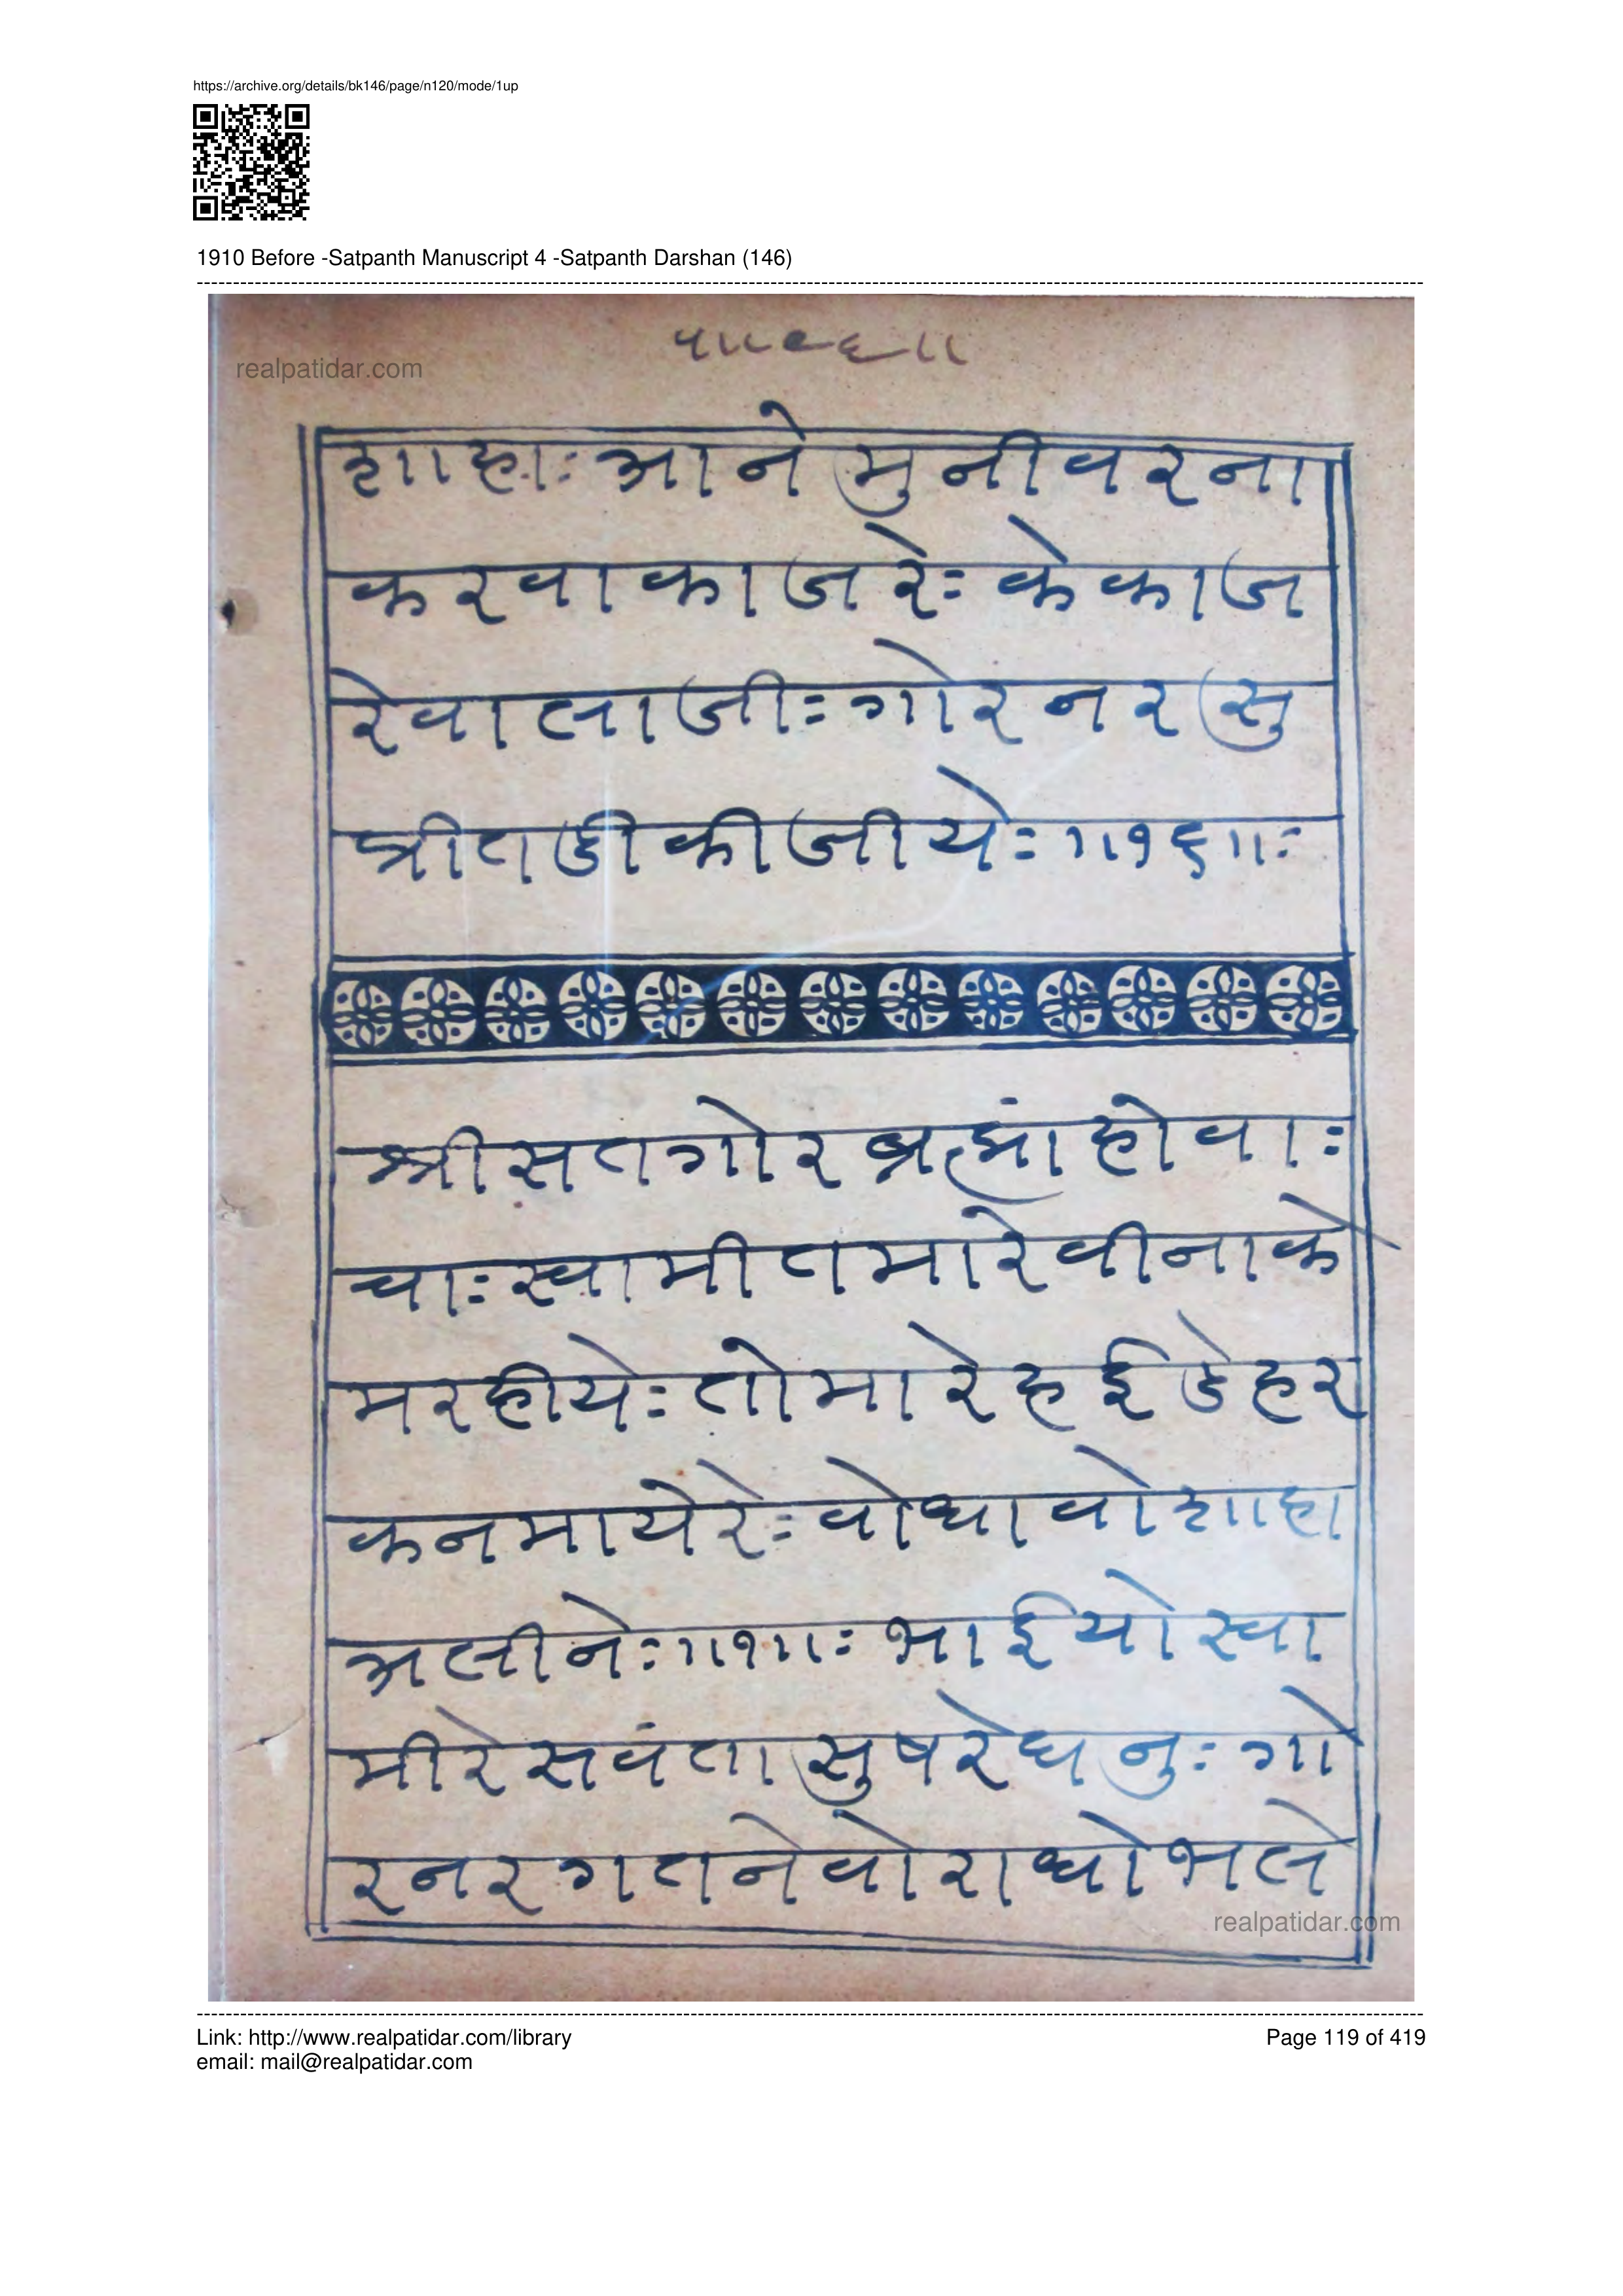 https://archive.org/details/bk146/page/n120/mode/1up
1910 Before -Satpanth Manuscript 4 -Satpanth Darshan (146)
realpatidar.com
शाहाः आने मुनीवरना
करवाकाजरेः केकाज
रेवालाजीः गोरनरसु
प्रीतडीकीजीयेः ॥१६॥ः
श्रीसतगोरब्रह्मांहोवाः
चाः स्वामीतमारेवीनाके
मरहीयेः तोमारेहईडेहर
कनमायेरेः वोधावोशाहा
अलीनेः ॥१॥ः भाईयोस्वा
मीरेसवंतासुषरेघनुः गो
रनरगतनेवोराधोभले
realpatidar.com
Link: http://www.realpatidar.com/library
Page 119 of 419
email: mail@realpatidar.com